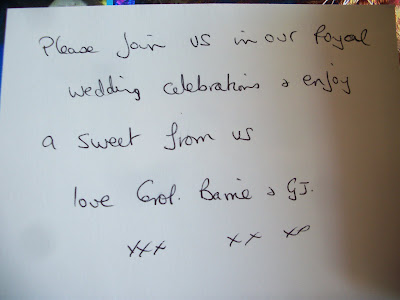 Please join us in our Royal
wedding celebrations & enjoy
a sweet from us
love Carol. Barrie & GJ.
xxx xx xx